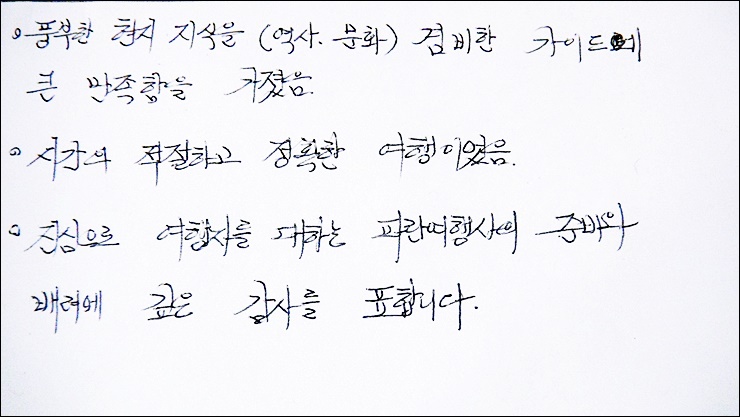 ◦ 풍부한 현지 지식을 (역사. 문화) 겸비한 가이드에
큰 만족함을 가졌음.
◦ 시간의 적절하고 정확한 여행이었음.
◦ 진심으로 여행자를 대하는 파란여행사의 준비와
배려에 깊은 감사를 표합니다.